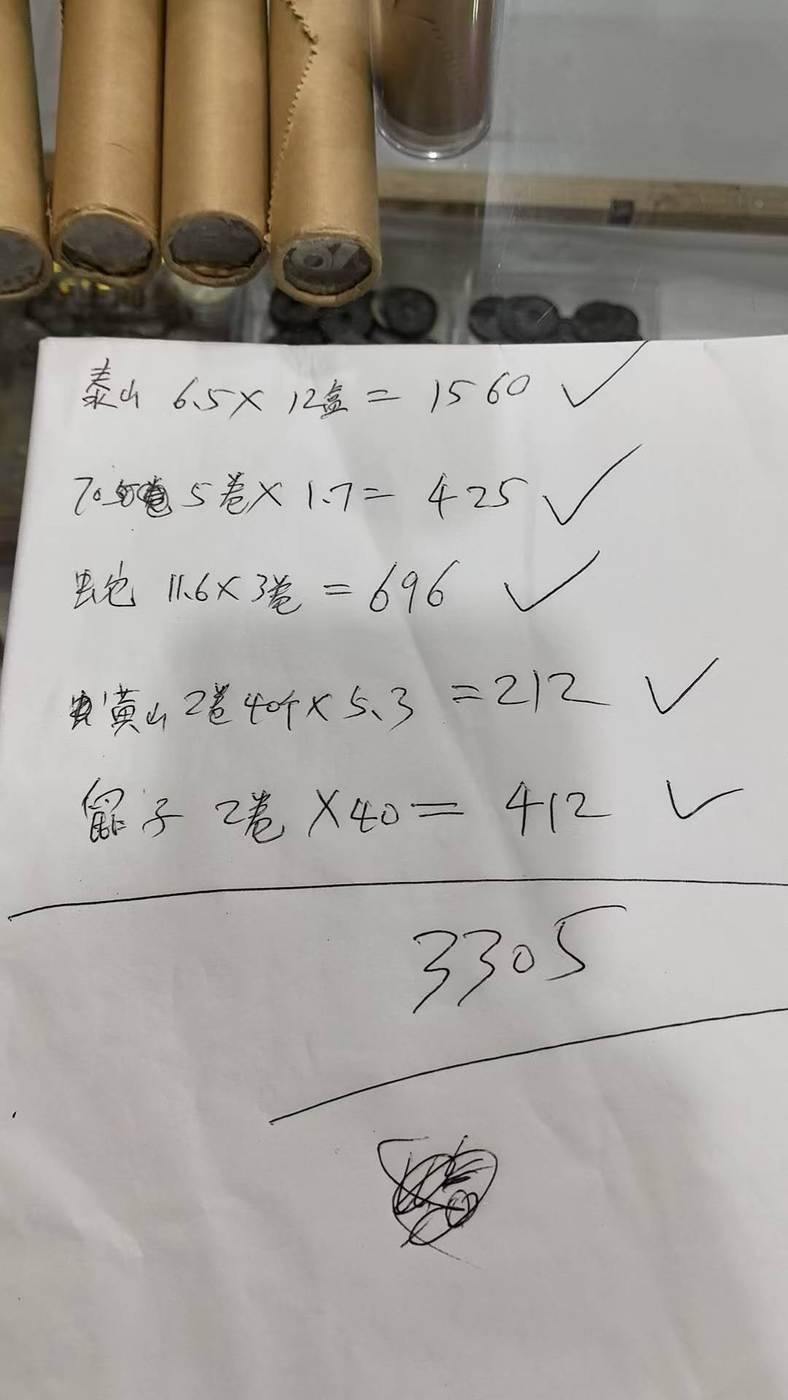 泰山 6.5× 12盒 = 1560
70 5卷×1.7= 425
11.6×3卷 = 696
黄山 2卷40个×5.3 =212
鼠子 2卷 ×40= 412
3305